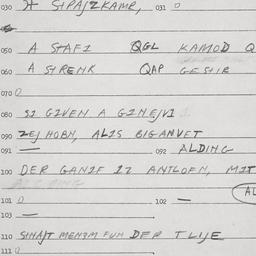 030 STPAJZKAMR, 031 0
050 A STAFI QGL KAMOD Q
060 A STRENK QAP GESTIR
070 0
080 SI GIVEN A GINEJVI
090 ZEJ HOBN, ALIS BIGANVET
091 — 092 ALDING
100 DER GANIF IZ ANTLOFN, MIT
AL
101 0 102 —
103 —
110 SHAJT MENTM FUN DER TLIJE
111 0